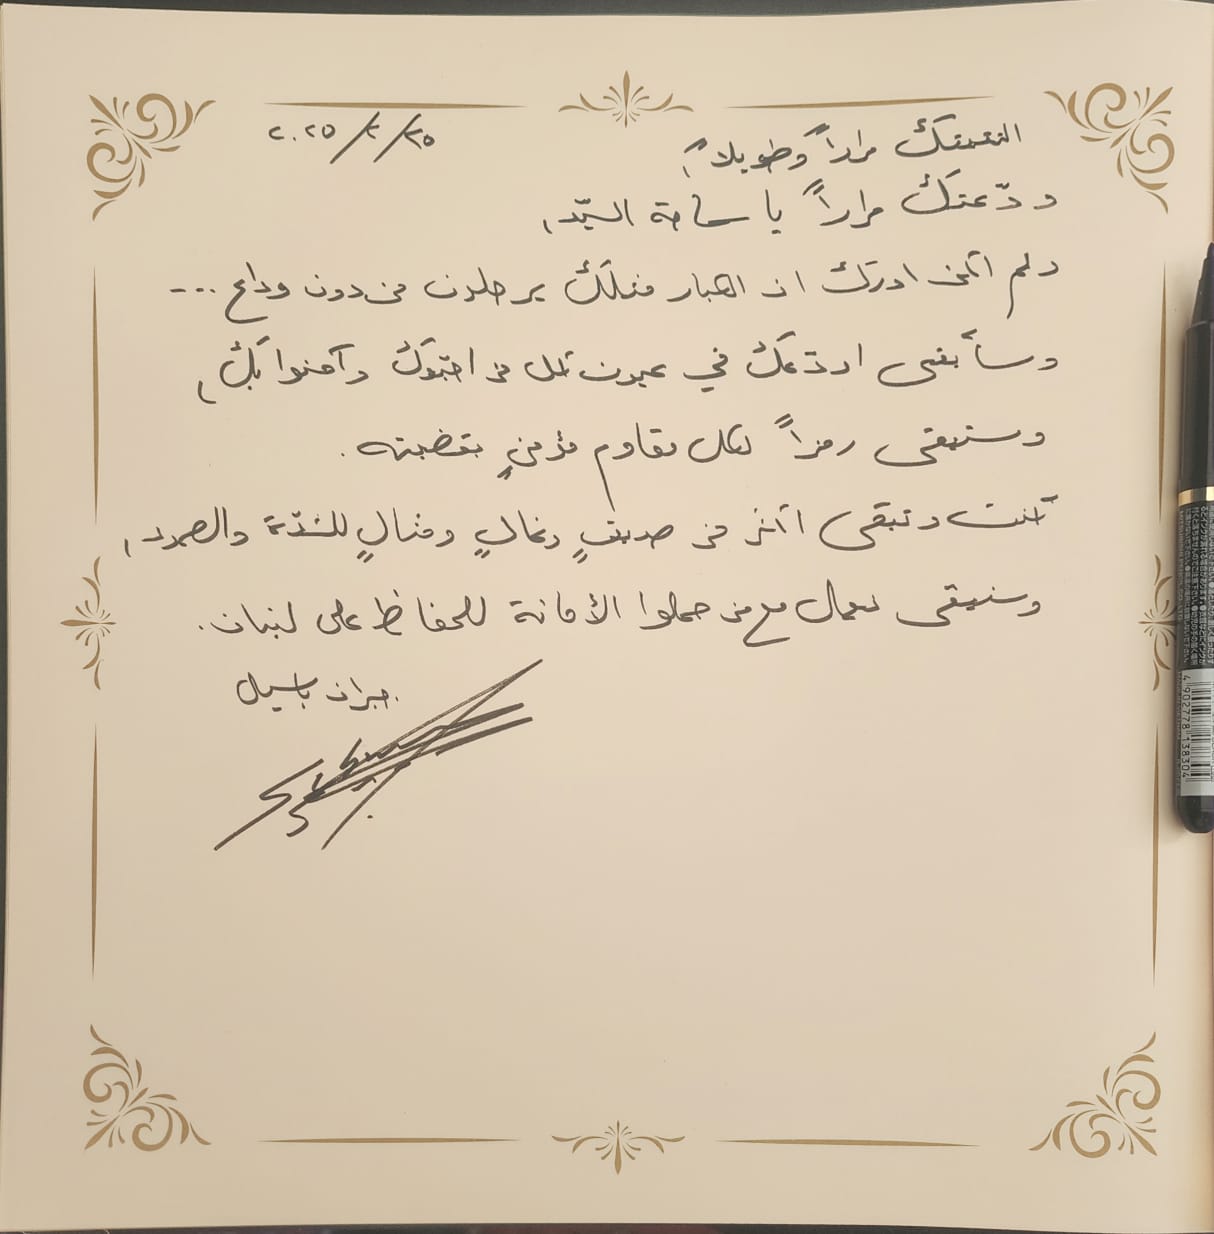 ٢٠٢٥/٢/٢٥
التقيتك مراراً وطويلاً،
ودّعتك مراراً يا سماحة السيّد،
ولم أكن ادرك ان الكبار مثلك يرحلون من دون وداع ...
وسأبقى اودّعك في عيون كل من احبّوك وآمنوا بك،
وستبقى رمزاً لكل مقاوم مؤمنٍ بقضيته.
كنت وتبقى اكثر من صديقٍ وغالٍ ومثالٍ للشدّة والصمود،
وسنبقى نعمل مع من حملوا الأمانة للحفاظ على لبنان.
جبران باسيل
4 902778 138304